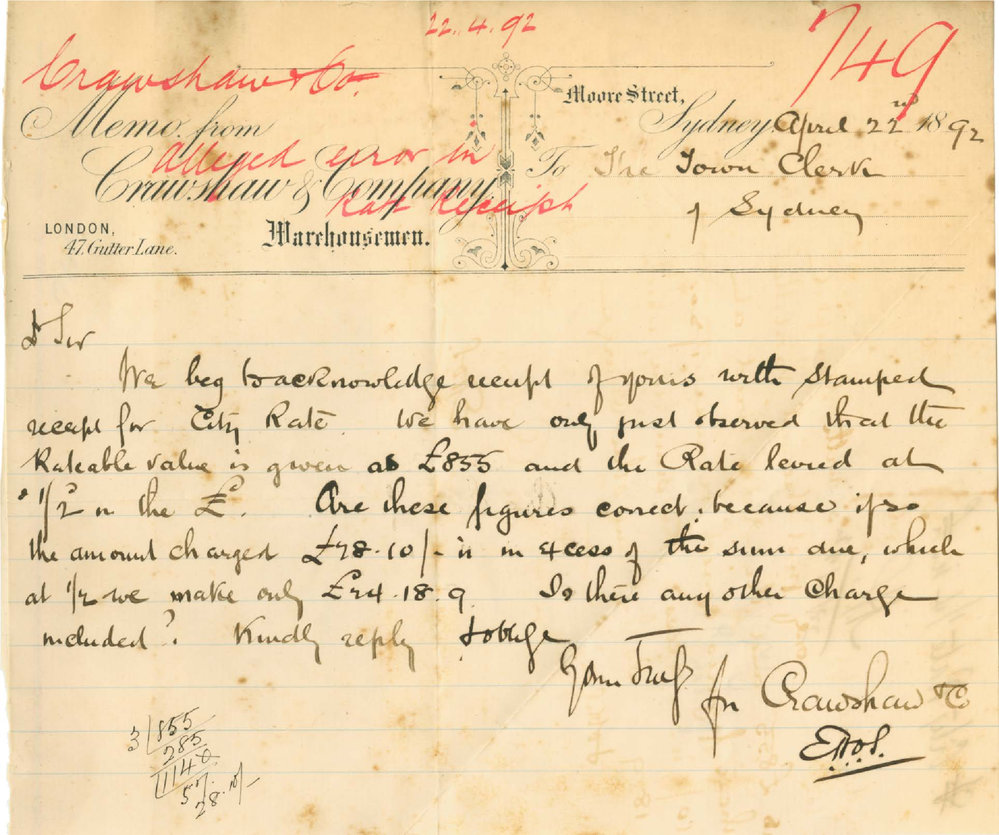 22.4.92
749
Crawshaw & Co.
Memo. from
alleged error in
Crawshaw & Company,
Rate Receipt
Warehousemen.
LONDON,
47, Gutter Lane.
Moore Street,
Sydney, April 22nd 1892
To The Town Clerk
of Sydney
Dr Sir
We beg to acknowledge receipt of yours with stamped
receipt for City Rate. We have only just observed that the
Rateable value is given as £855 and the Rate levied at
in the £. Are these figures correct, because if so
the amount charged £28.10/- is in excess of the sum due, which
at we make only £24.18.9. Is there any other charge
included? Kindly reply & oblige
Yours Truly
for Crawshaw & Co
3 | 855
285
1140
57
28.10/-